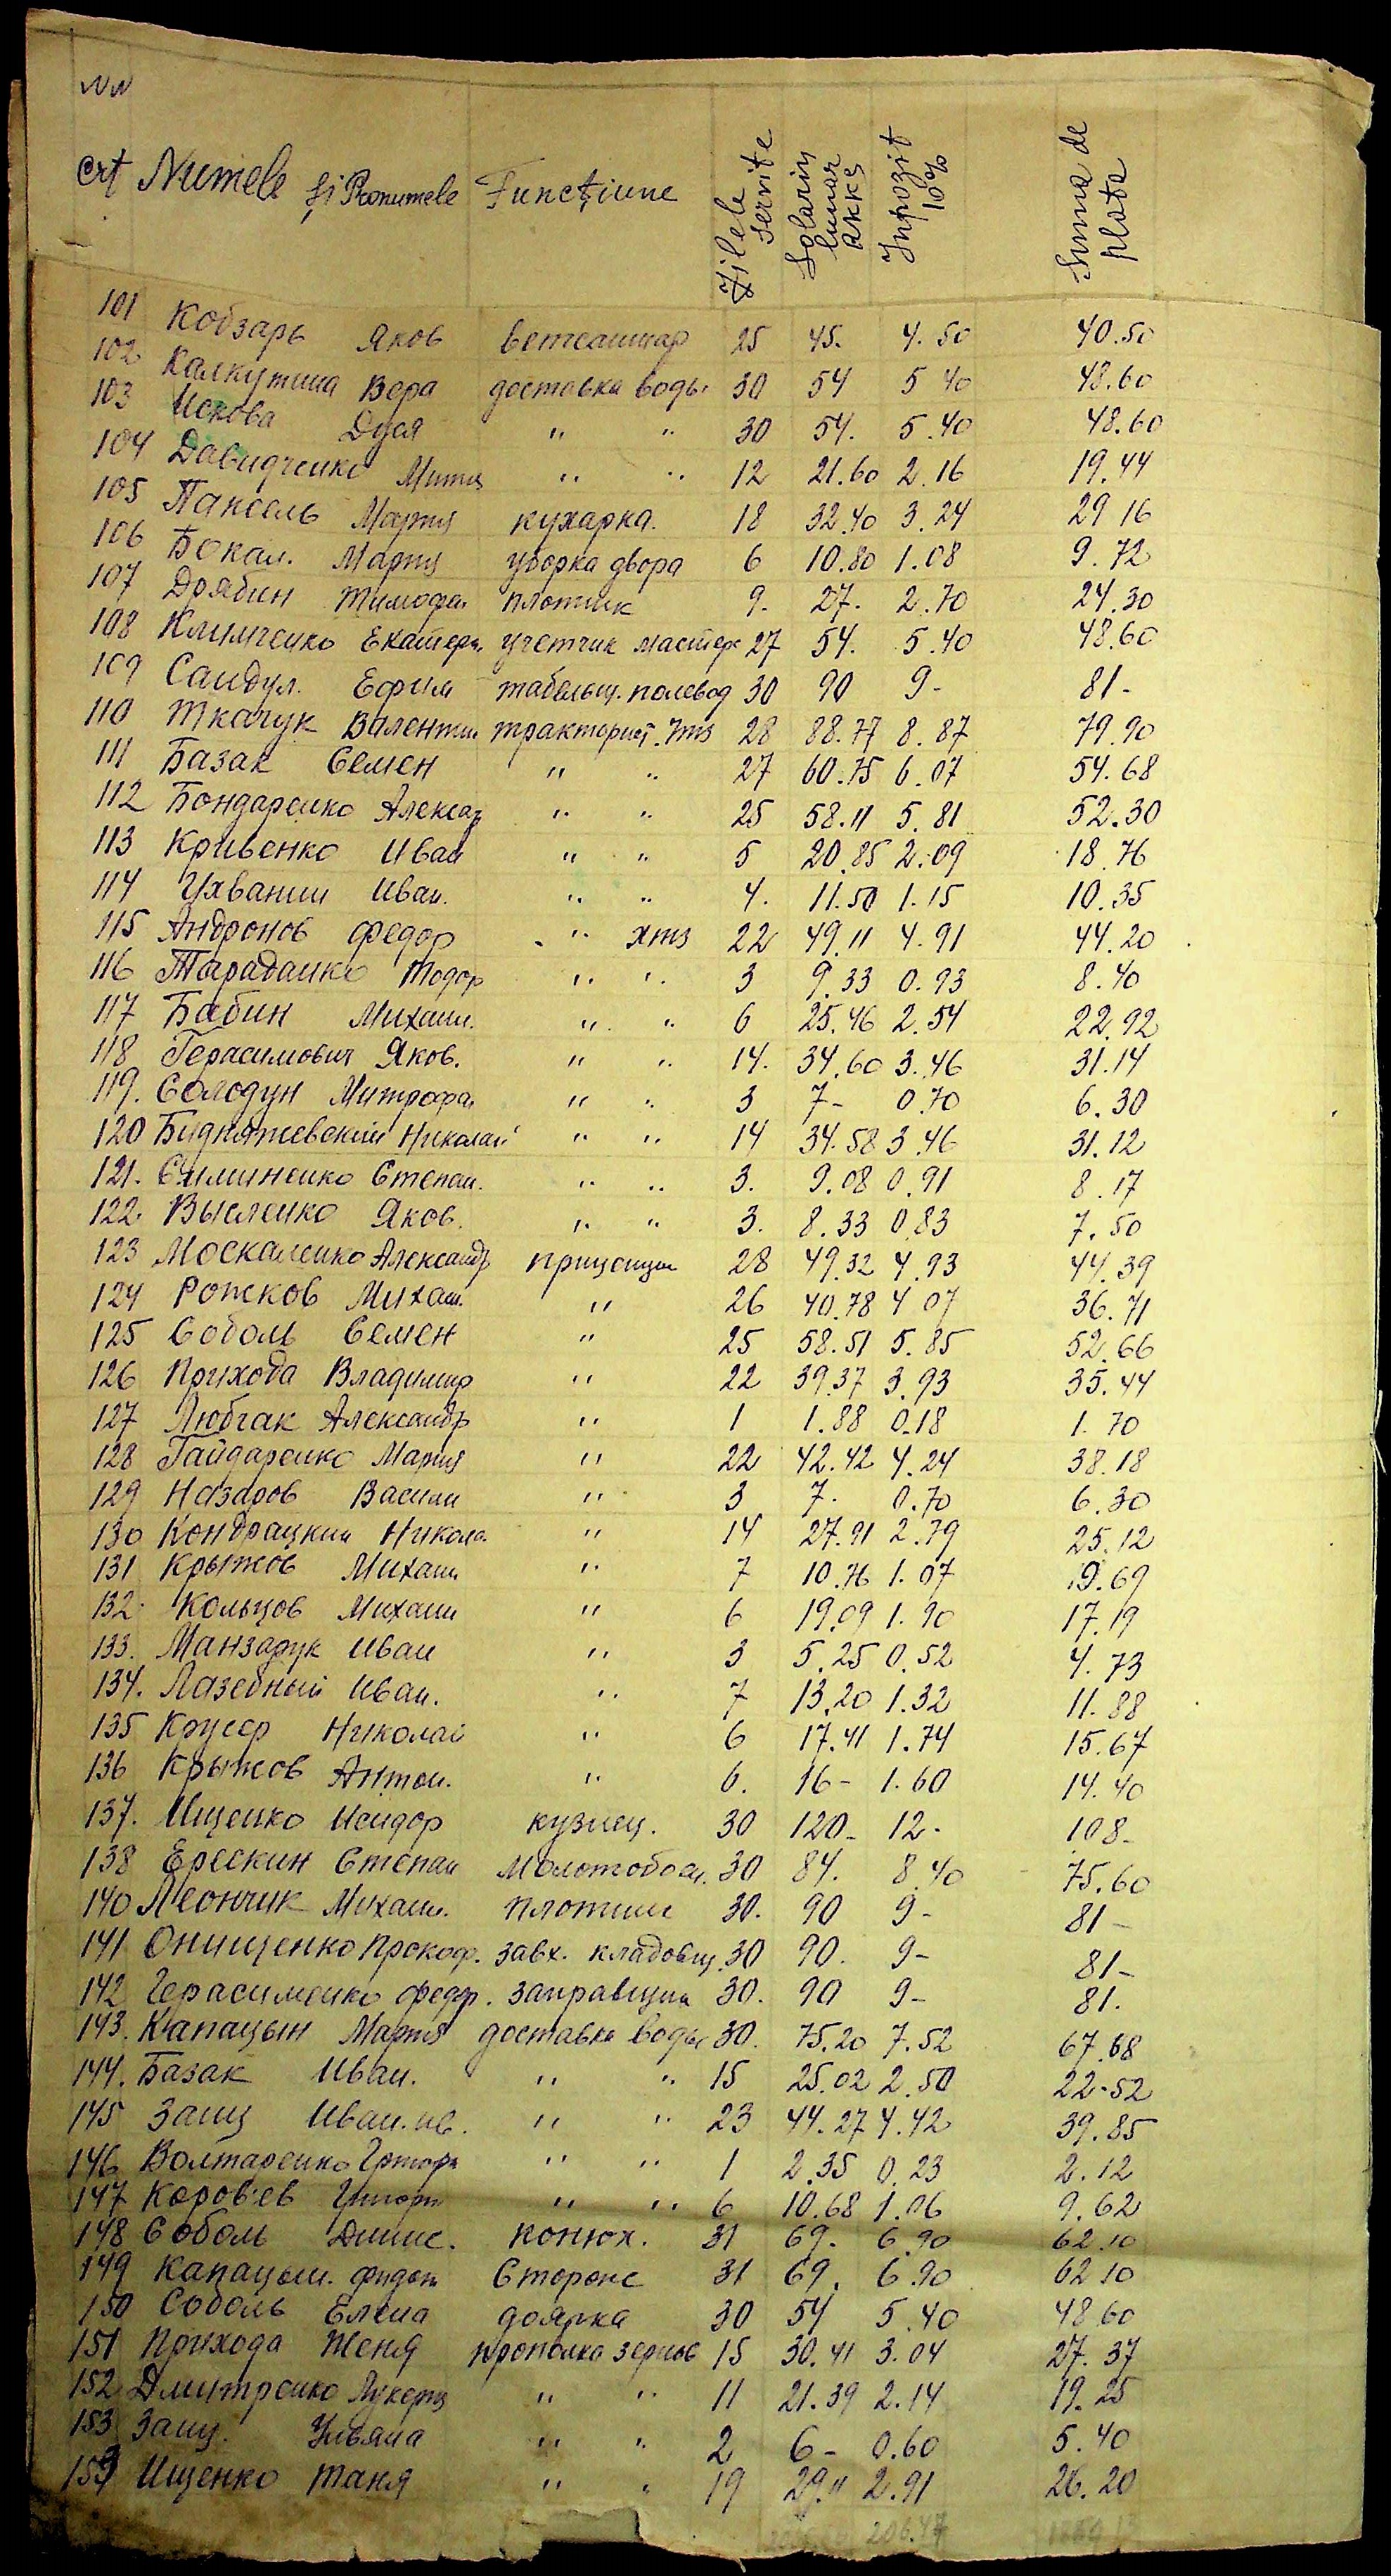 NN
crt Numele și Pronumele Funcțiune Zilele servite Solariu lunar RKKS Inpozit 10% Suma de plata
101 Кобзарь Яков ветсанитар 25 45. 4.50 40.50
102 Калкутина Вера доставка воды 30 54 5 40 48.60
103 Искова Дуся " " 30 54. 5.40 48.60
104 Давидченко Митя " " 12 21.60 2.16 19.44
105 Мария кухарка. 18 32.40 3.24 29 16
106 Бокал. Мария уборка двора 6 10.80 1.08 9.72
107 Дрябин Тимофе плотник 9. 27. 2.70 24.30
108 Климченко Екатери. учетчик мастерс 27 54. 5.40 48.60
109 Сандул. Ефим табельщ. полевод 30 90 9- 81-
110 Ткачук Валентин тракторист. 28 88.77 8.87 79.90
111 Базак Семен " " 27 60.75 6.07 54.68
112 Бондаренко Александр " " 25 58.11 5.81 52.30
113 Кривенко Иван " " 5 20.85 2.09 18.76
114 Иван. " " 4. 11.50 1.15 10.35
115 Андронов Федор " хтз 22 49.11 4.91 44.20
116 Тараданко Тодор " " 3 9.33 0.93 8.40
117 Бабин Михаил. " " 6 25.46 2.54 22.92
118 Герасимович Яков. " " 14. 34.60 3.46 31.14
119. Солодун Митрофан " " 3 7- 0.70 6.30
120 Будняжевский Николай " " 14 34.58 3.46 31.12
121. Силиненко Степан. " " 3. 9.08 0.91 8.17
122. Высленко Яков. " " 3. 8.33 0.83 7.50
123 Москаленко Александр прицепщик 28 49.32 4.93 44.39
124 Рожков Михаил. " 26 40.78 4 07 36.71
125 Соболь Семен " 25 58.51 5.85 52.66
126 Прихода Владимир " 22 39.37 3.93 35.44
127 Любчак Александр " 1 1.88 0.18 1.70
128 Гайдаренко Мария " 22 42.42 4.24 38.18
129 Назаров Васили " 3 7. 0.70 6.30
130 Кондрацкий Никола. " 14 27.91 2.79 25.12
131 Крыжов Михаил " 7 10.76 1.07 9.69
132. Кольцов Михаил " 6 19.09 1.90 17.19
133. Манзарук Иван " 3 5.25 0.52 4.73
134. Лазебный Иван. " 7 13.20 1.32 11.88
135 Крусер Николай " 6 17.41 1.74 15.67
136 Крыжов Антон. " 6. 16- 1.60 14.40
137. Ищенко Исидор кузнец. 30 120- 12. 108-
138 Ерескин Степан молотобоец. 30 84. 8.40 75.60
140 Леончик Михаил. плотник 30. 90 9- 81-
141 Онищенко Прокоф. завх. кладовщ. 30 90. 9- 81-
142 Герасименко Федр. заправщик 30. 90 9- 81.
143. Капацын Мария доставка воды 30. 75.20 7.52 67.68
144. Базак Иван. " " 15 25.02 2.50 22-52
145 Заиц Иван. ив. " " 23 44.27 4.42 39.85
146 Волтаренко Григори " " 1 2.35 0.23 2.12
147 Коров'ев Григори " " 6 10.68 1.06 9.62
148 Соболь Динис. конюх. 31 69. 6.90 62.10
149 Капацын. Федот Сторож 31 69. 6.90 62 10
150 Соболь Елена доярка 30 54 5.40 48.60
151 Прихода Женя прополка зернов 15 30.41 3.04 27.37
152 Дмитренко Лукеря " " 11 21.39 2.14 19.25
153 Заиц. Ульяна " " 2 6- 0.60 5.40
159 Ищенко Таня " " 19 29.11 2.91 26.20
206.47